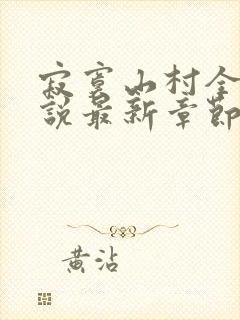 寂寞山村全
說最新章節
黃沾